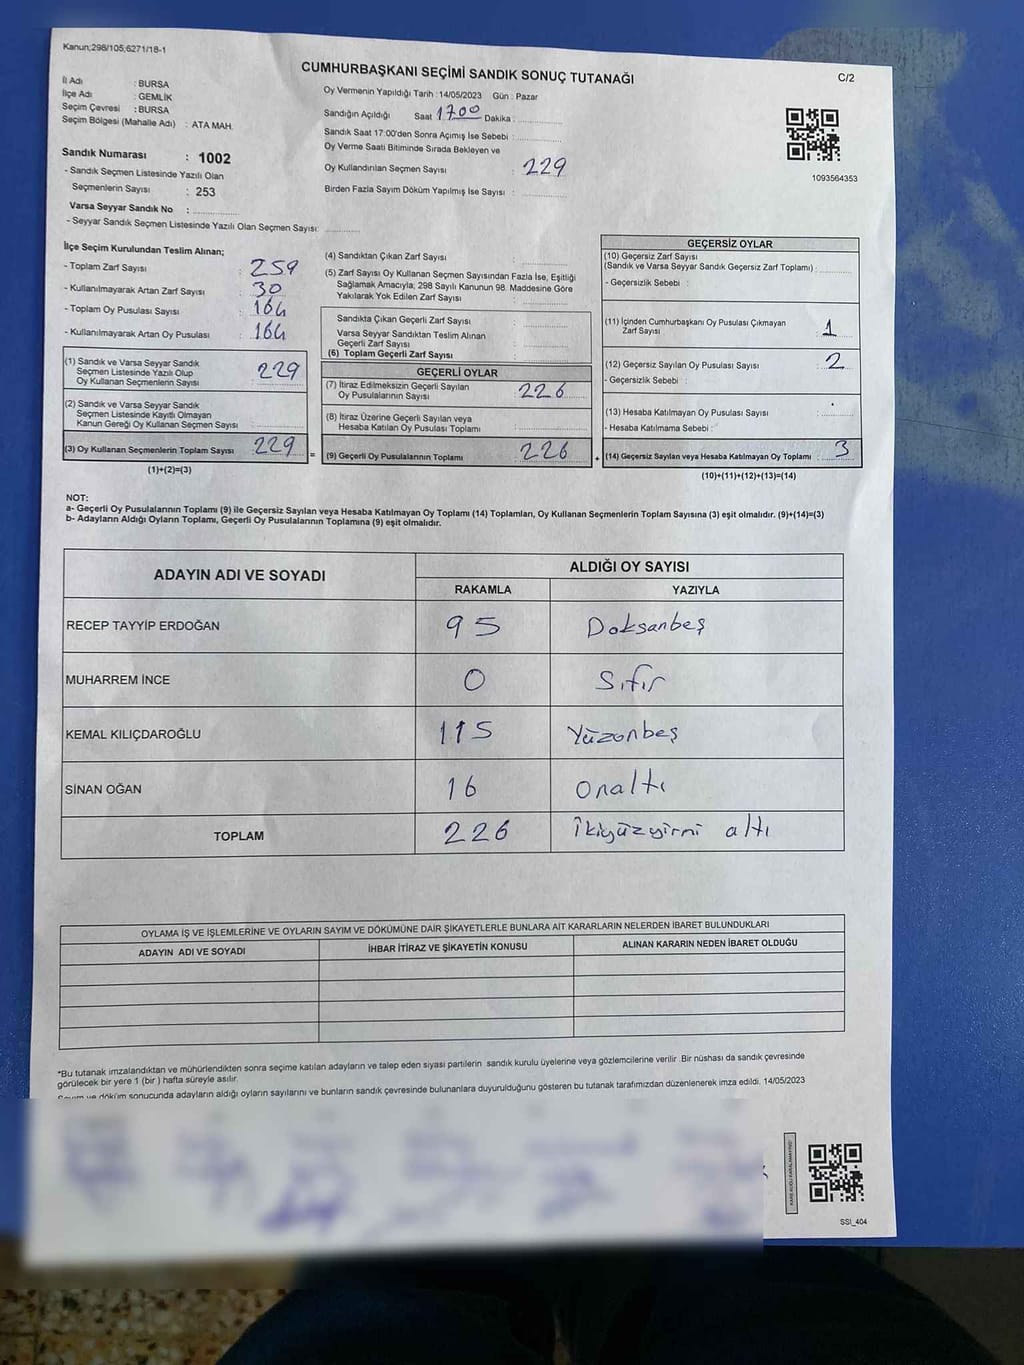 Kanun;298/105;6271/18-1
CUMHURBAŞKANI SEÇİMİ SANDIK SONUÇ TUTANAĞI
C/2
İl Adı : BURSA
İlçe Adı : GEMLİK
Seçim Çevresi : BURSA
Seçim Bölgesi (Mahalle Adı) : ATA MAH.
Sandık Numarası : 1002
- Sandık Seçmen Listesinde Yazılı Olan
Seçmenlerin Sayısı : 253
Varsa Seyyar Sandık No :
- Seyyar Sandık Seçmen Listesinde Yazılı Olan Seçmen Sayısı:
Oy Vermenin Yapıldığı Tarih :14/05/2023 Gün : Pazar
Sandığın Açıldığı Saat 1700 Dakika :
Sandık Saat 17:00'den Sonra Açımış İse Sebebi :
Oy Verme Saati Bitiminde Sırada Bekleyen ve
Oy Kullandırılan Seçmen Sayısı : 229
Birden Fazla Sayım Döküm Yapılmış İse Sayısı :
1093564353
İlçe Seçim Kurulundan Teslim Alınan;
- Toplam Zarf Sayısı : 259
- Kullanılmayarak Artan Zarf Sayısı : 30
- Toplam Oy Pusulası Sayısı : 164
- Kullanılmayarak Artan Oy Pusulası : 164
(1) Sandık ve Varsa Seyyar Sandık
Seçmen Listesinde Yazılı Olup
Oy Kullanan Seçmenlerin Sayısı : 229
(2) Sandık ve Varsa Seyyar Sandık
Seçmen Listesinde Kayıtlı Olmayan
Kanun Gereği Oy Kullanan Seçmen Sayısı :
(3) Oy Kullanan Seçmenlerin Toplam Sayısı : 229
(1)+(2)=(3)
=
(4) Sandıktan Çıkan Zarf Sayısı :
(5) Zarf Sayısı Oy Kullanan Seçmen Sayısından Fazla İse, Eşitliği
Sağlamak Amacıyla; 298 Sayılı Kanunun 98. Maddesine Göre
Yakılarak Yok Edilen Zarf Sayısı :
Sandıkta Çıkan Geçerli Zarf Sayısı :
Varsa Seyyar Sandıktan Teslim Alınan
Geçerli Zarf Sayısı :
(6) Toplam Geçerli Zarf Sayısı :
GEÇERLİ OYLAR
(7) İtiraz Edilmeksizin Geçerli Sayılan
Oy Pusulalarının Sayısı : 226
(8) İtiraz Üzerine Geçerli Sayılan veya
Hesaba Katılan Oy Pusulası Toplamı :
(9) Geçerli Oy Pusulalarının Toplamı : 226
+
GEÇERSİZ OYLAR
(10) Geçersiz Zarf Sayısı
(Sandık ve Varsa Seyyar Sandık Geçersiz Zarf Toplamı) :
- Geçersizlik Sebebi :
(11) İçinden Cumhurbaşkanı Oy Pusulası Çıkmayan
Zarf Sayısı : 1
(12) Geçersiz Sayılan Oy Pusulası Sayısı : 2
- Geçersizlik Sebebi :
(13) Hesaba Katılmayan Oy Pusulası Sayısı :
- Hesaba Katılmama Sebebi :
(14) Geçersiz Sayılan veya Hesaba Katılmayan Oy Toplamı : 3
(10)+(11)+(12)+(13)=(14)
NOT:
a- Geçerli Oy Pusulalarının Toplamı (9) ile Geçersiz Sayılan veya Hesaba Katılmayan Oy Toplamı (14) Toplamları, Oy Kullanan Seçmenlerin Toplam Sayısına (3) eşit olmalıdır. (9)+(14)=(3)
b- Adayların Aldığı Oyların Toplamı, Geçerli Oy Pusulalarının Toplamına (9) eşit olmalıdır.
ADAYIN ADI VE SOYADI
ALDIĞI OY SAYISI
RAKAMLA YAZIYLA
RECEP TAYYİP ERDOĞAN 95 Doksanbeş
MUHARREM İNCE 0 Sıfır
KEMAL KILIÇDAROĞLU 115 Yüzonbeş
SİNAN OĞAN 16 Onaltı
TOPLAM 226 İkiyüzyirmi altı
OYLAMA İŞ VE İŞLEMLERİNE VE OYLARIN SAYIM VE DÖKÜMÜNE DAİR ŞİKAYETLERLE BUNLARA AİT KARARLARIN NELERDEN İBARET BULUNDUKLARI
ADAYIN ADI VE SOYADI İHBAR İTİRAZ VE ŞİKAYETİN KONUSU ALINAN KARARIN NEDEN İBARET OLDUĞU
*Bu tutanak imzalandıktan ve mühürlendikten sonra seçime katılan adayların ve talep eden siyasi partilerin sandık kurulu üyelerine veya gözlemcilerine verilir .Bir nüshası da sandık çevresinde
görülecek bir yere 1 (bir ) hafta süreyle asılır.
Sayım ve döküm sonucunda adayların aldığı oyların sayılarını ve bunların sandık çevresinde bulunanlara duyurulduğunu gösteren bu tutanak tarafımızdan düzenlenerek imza edildi. 14/05/2023
SSI_404